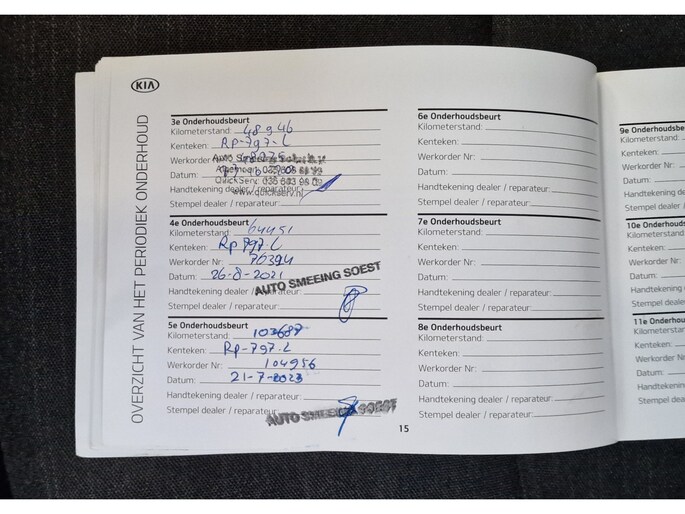 KIA
OVERZICHT VAN HET PERIODIEK ONDERHOUD
3e Onderhoudsbeurt
Kilometerstand: 48946
Kenteken: Rp-797-L
Werkorder Nr:
Datum:
Handtekening dealer / reparateur:
www.quickserv.nl
Stempel dealer / reparateur:
4e Onderhoudsbeurt
Kilometerstand: 64451
Kenteken: Rp 797-L
Werkorder Nr: 76394
Datum: 26-8-2021
AUTO SMEEING SOEST
Handtekening dealer / reparateur:
Stempel dealer / reparateur:
5e Onderhoudsbeurt
Kilometerstand: 103687
Kenteken: Rp-797-L
Werkorder Nr: 104956
Datum: 21-7-2023
Handtekening dealer / reparateur:
Stempel dealer / reparateur: AUTO SMEEING SOEST
6e Onderhoudsbeurt
Kilometerstand:
Kenteken:
Werkorder Nr:
Datum:
Handtekening dealer / reparateur:
Stempel dealer / reparateur:
7e Onderhoudsbeurt
Kilometerstand:
Kenteken:
Werkorder Nr:
Datum:
Handtekening dealer / reparateur:
Stempel dealer / reparateur:
8e Onderhoudsbeurt
Kilometerstand:
Kenteken:
Werkorder Nr:
Datum:
Handtekening dealer / reparateur:
Stempel dealer / reparateur:
15
9e Onderhou
Kilometersta
Kenteken:
Werkorder N
Datum:
Handtekening
Stempel deal
10e Onderho
Kilometersta
Kenteken:
Werkorder N
Datum:
Handtekening
Stempel deal
11e Onderho
Kilometersta
Kenteken:
Werkorder N
Datum:
Handtekenin
Stempel deal